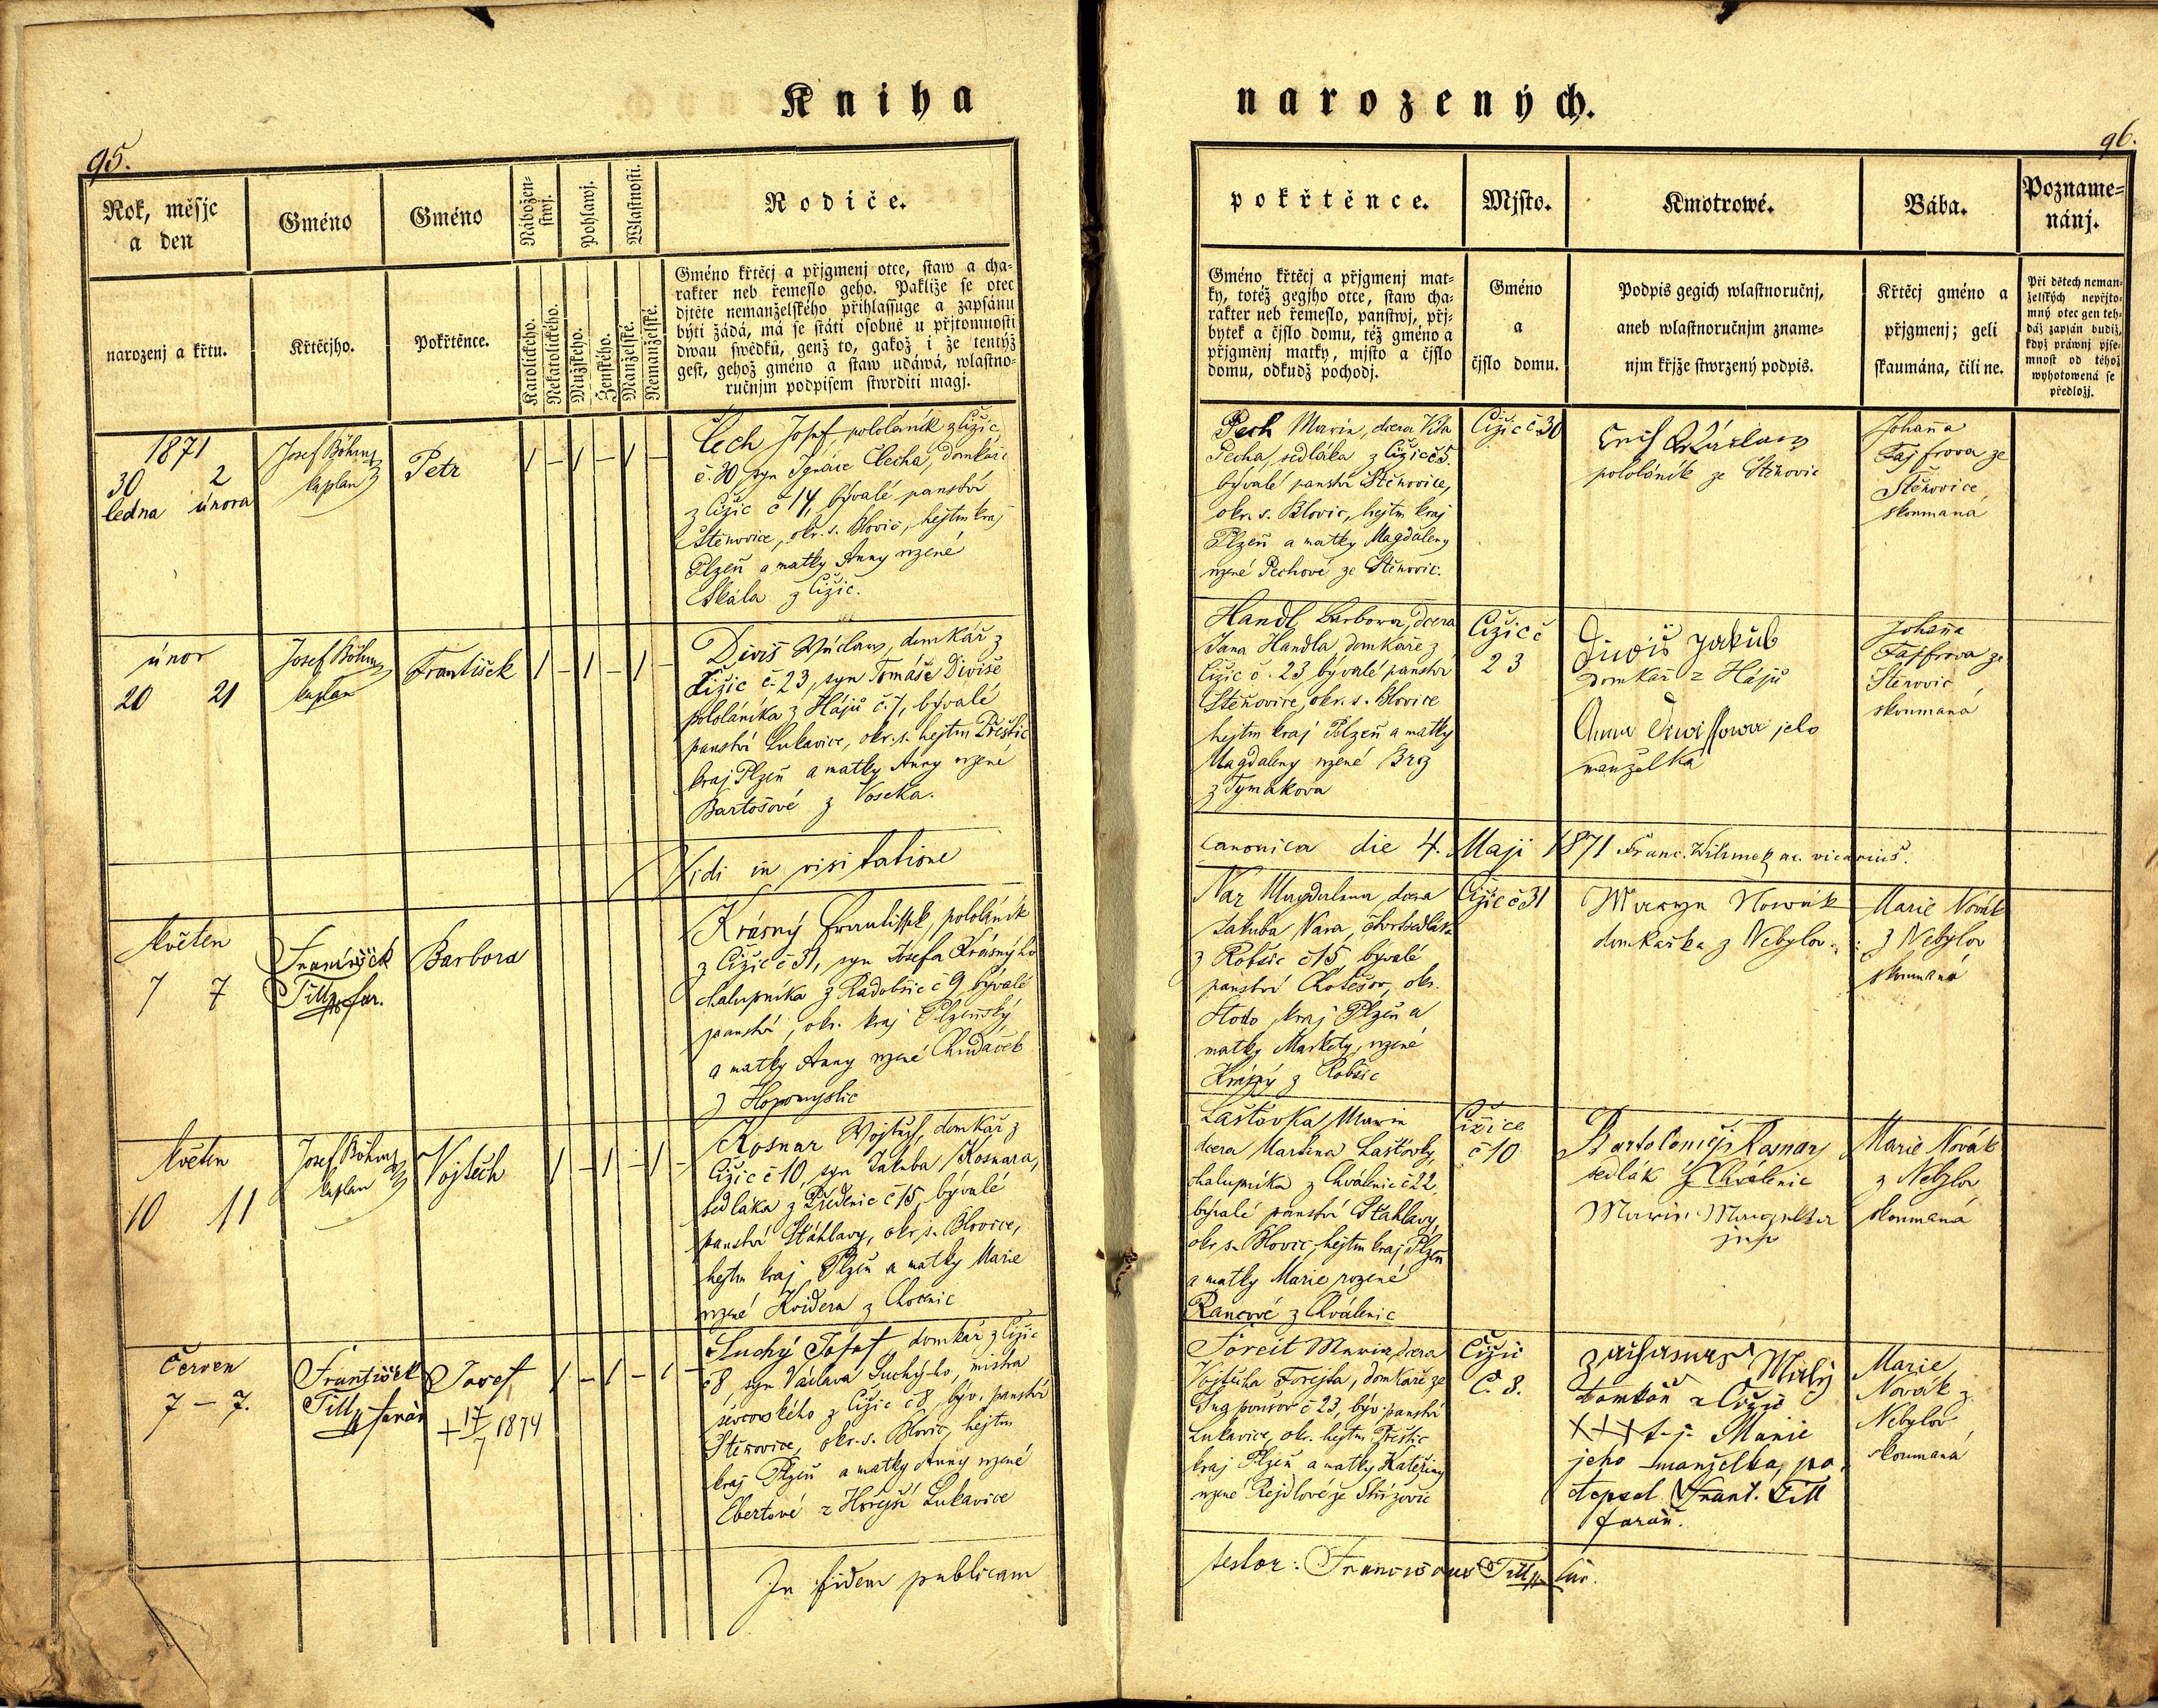 Kniha
narozených.
95.
96.
Rok, měsjc
a den
Gméno
Gméno
Nábožen-
stwj.
Pohlawj.
Wlastnosti.
Rodiče.
pokřtěnce.
Mjsto.
Kmotrowé.
Bába.
Pozname-
nánj.
narozenj a křtu.
Křtěcjho.
Pokřtěnce.
Katolického.
Nekatolického.
Mužského.
Ženského.
Manželské.
Nemanželské.
Gméno křtěcj a přjgmenj otce, staw a cha-
rakter neb řemeslo geho. Pakliže se otec
djtěte nemanželského přihlassuge a zapsánu
býti žádá, má se státi osobně u přjtomnosti
dwau swědků, genž to, gakož i že tentýž
gest, gehož gméno a staw udáwá, wlastno-
ručnjm podpisem stwrditi magj.
Gméno křtěcj a přjgmenj mat-
ky, totéž gegjho otce, staw cha-
rakter neb řemeslo, panstwj, přj-
bytek a čjslo domu, též gméno a
přjgměnj matky, mjsto a čjslo
domu, odkudž pochodj.
Gméno
a
čjslo domu.
Podpis gegich wlastnoručnj,
aneb wlastnoručnjm zname-
njm křjže stwrzený podpis.
Křtěcj gméno a
přjgmenj; geli
skaumána, čili ne.
Při dětech neman-
želských nepřjto-
mný otec gen teh-
dáž zapsán budiž,
když práwnj pjse-
mnost od téhož
wyhotowená se
předložj.
1871
30 2
ledna února
Josef Böhm
kaplan
Petr
1 – 1 – 1 –
Čech Josef, pololáník z Čižic
č. 30 syn Ignáce Čecha, domkáře
z Čižic č 14, bývalé panství
Štěnovice, okr. s. Blovic, hejtm kraj
Plzeň a matky Anny rozené
Skála z Čižic.
Pech Marie, dcera Víta
Pecha, sedláka z Čižic č 5.
bývalé panství Štěnovice,
okr. s. Blovic, hejtm kraj
Plzeň a matky Magdaleny
rozené Pechové ze Štěnovic.
Čižic č 30
pololáník ze Štěnovic
Johana
Fajfrova ze
Štěnovice,
skoumaná
únor
20 21
Josef Böhm
kaplan
František
1 – 1 – 1 –
Diviš Václav, domkář z
Čižic č. 23, syn Tomáše Diviše
pololáníka z Hájů č. 7, bývalé
panství Lukavice, okr. s. hejtm Přeštic
kraj Plzeň a matky Anny rozené
Bartošové z Voseka.
Handl Barbora, dcera
Jana Handla domkáře z
Čižic č. 23, bývalé panství
Štěnovice, okr. s. Blovice
hejtm kraj Plzeň a matky
Magdaleny rozené Brož
z Tymákova
Čižic č
23
Diviš Jakub
domkař z Hájů
Anna Diwissowa jeho
manželka
Johana
Fajfrova ze
Štěnovic
skoumaná
Vidi in visitatione
canonica die 4. Maji 1871 Franc. vicarius.
Květen
7 7
František
Till far.
Barbora
Krásný František pololáník
z Čižic č 31, syn Josefa Krásnýho
chalupníka z Radobčic č 9 bývalé
panství, okr. kraj Plzeňský
a matky Anny rozené Chudáček
z
Nar Magdalena dcera
Jakuba Nara,
z Robčic č 15, bývalé
panství Chotěšov, okr.
Stodo, kraj Plzeň a
matky Markéty, rozené
z Robčic
Čižic č 31
Nowák
domkařka z Nebylov
Marie Novák
z Nebylov
skoumaná
Květen
10 11
Josef Böhm
kaplan
Vojtěch
1 – 1 – 1 –
Kosnar Vojtěch, domkář z
Čižic č 10, syn Jakuba Kosnara,
sedláka z č 15, bývalé
panství Štáhlavy, okr. s. Blovice,
hejtm kraj Plzeň a matky Marie
rozené Kvidera z
Laštovka Marie
dcera Martina Laštovky,
chalupníka z Chválenic č 22,
bývalé panství Štahlavy,
okr s. Blovic, hejtm kraj Plzeň
a matky Marie rozené
z Chválenic
Čižice
č 10
Bartoloměj Kosnar
sedlák z Chválenic
Marie
Marie Novák
z Nebylov
skoumaná
Červen
7 – 7.
František
Till farář
Josef
+ 17/7 1874
1 – 1 – 1 –
Suchý Josef domkář z Čižic
č 8, syn Václava Suchýho, mistra
ševcovského z Čižic č 8, býv. panství
Štěnovice, okr. s. Blovic, hejtm
kraj Plzeň a matky Anny rozené
Ebertové z Hořejší Lukavice
Foreit Marie, dcera
Vojtěcha Forejta, domkáře ze
č 23, býv. panství
Lukavice, okr. hejtm. Přeštic
kraj Plzeň a matky Kateřiny
rozené Rejdlové ze Střížovic
Čižic
č. 8.
Milý
domkař z Čižic
XXX t. j. Marie
jeho manželka, po-
depsal Frant. Till
farář.
Marie
Novák z
Nebylov
skoumaná
In fidem publicam
testor: Franciscus Till